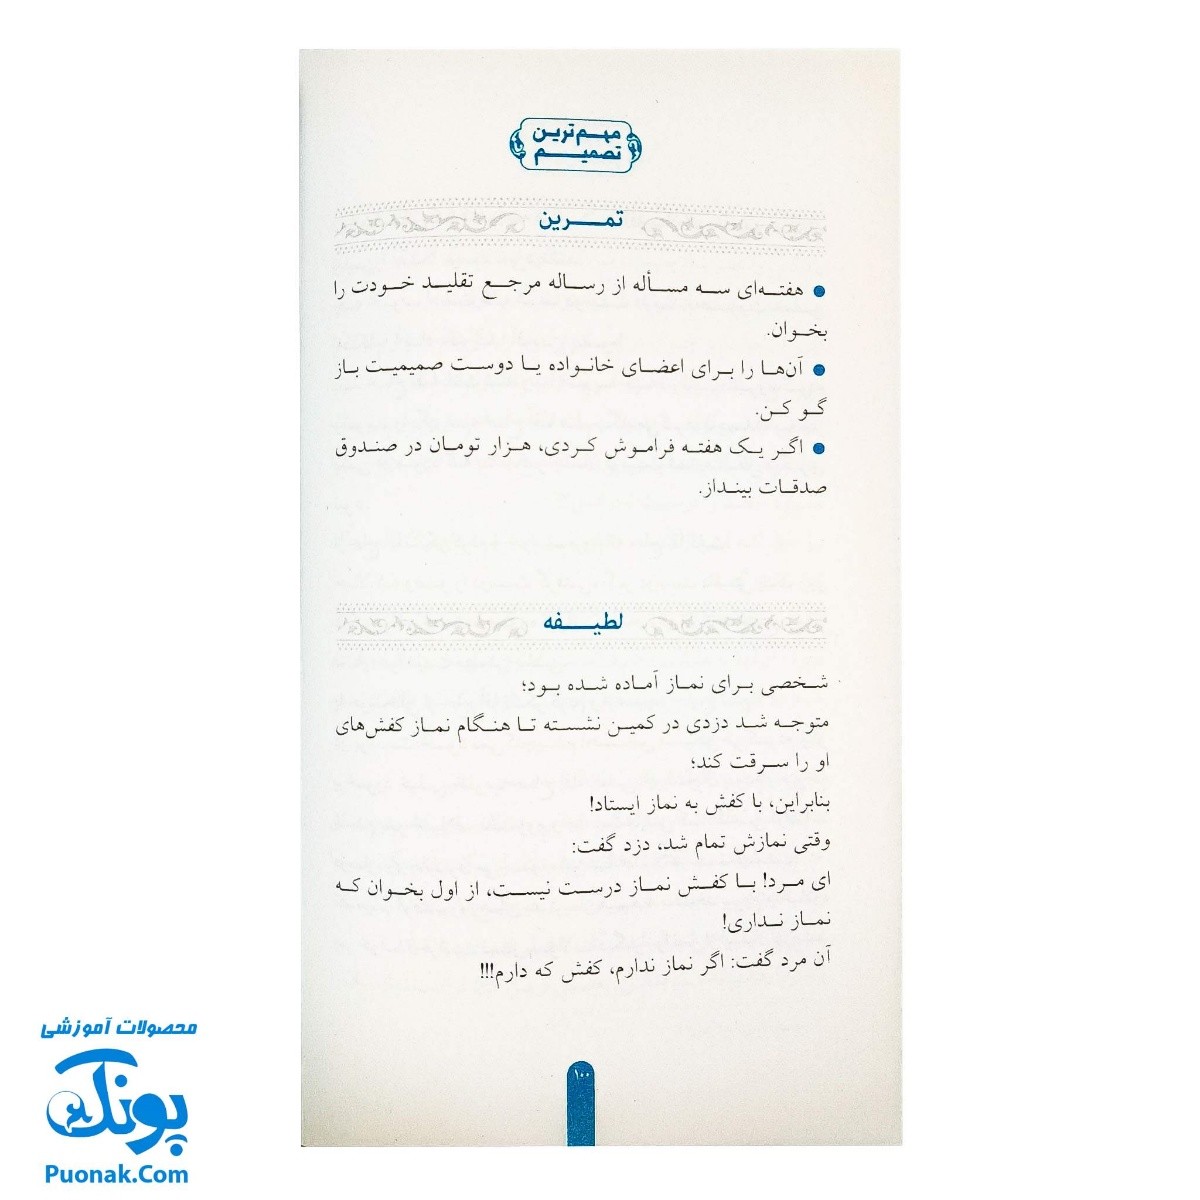 مهم‌ترین
تصمیم
تمرین
● هفته‌ای سه مسأله از رساله مرجع تقلید خودت را
بخوان.
● آن‌ها را برای اعضای خانواده یا دوست صمیمیت باز
گو کن.
● اگر یک هفته فراموش کردی، هزار تومان در صندوق
صدقات بینداز.
لطیفه
شخصی برای نماز آماده شده بود؛
متوجه شد دزدی در کمین نشسته تا هنگام نماز کفش‌های
او را سرقت کند؛
بنابراین، با کفش به نماز ایستاد!
وقتی نمازش تمام شد، دزد گفت:
ای مرد! با کفش نماز درست نیست، از اول بخوان که
نماز نداری!
آن مرد گفت: اگر نماز ندارم، کفش که دارم!!!
۱۰۰
محصولات آموزشی
پونک
Puonak.Com